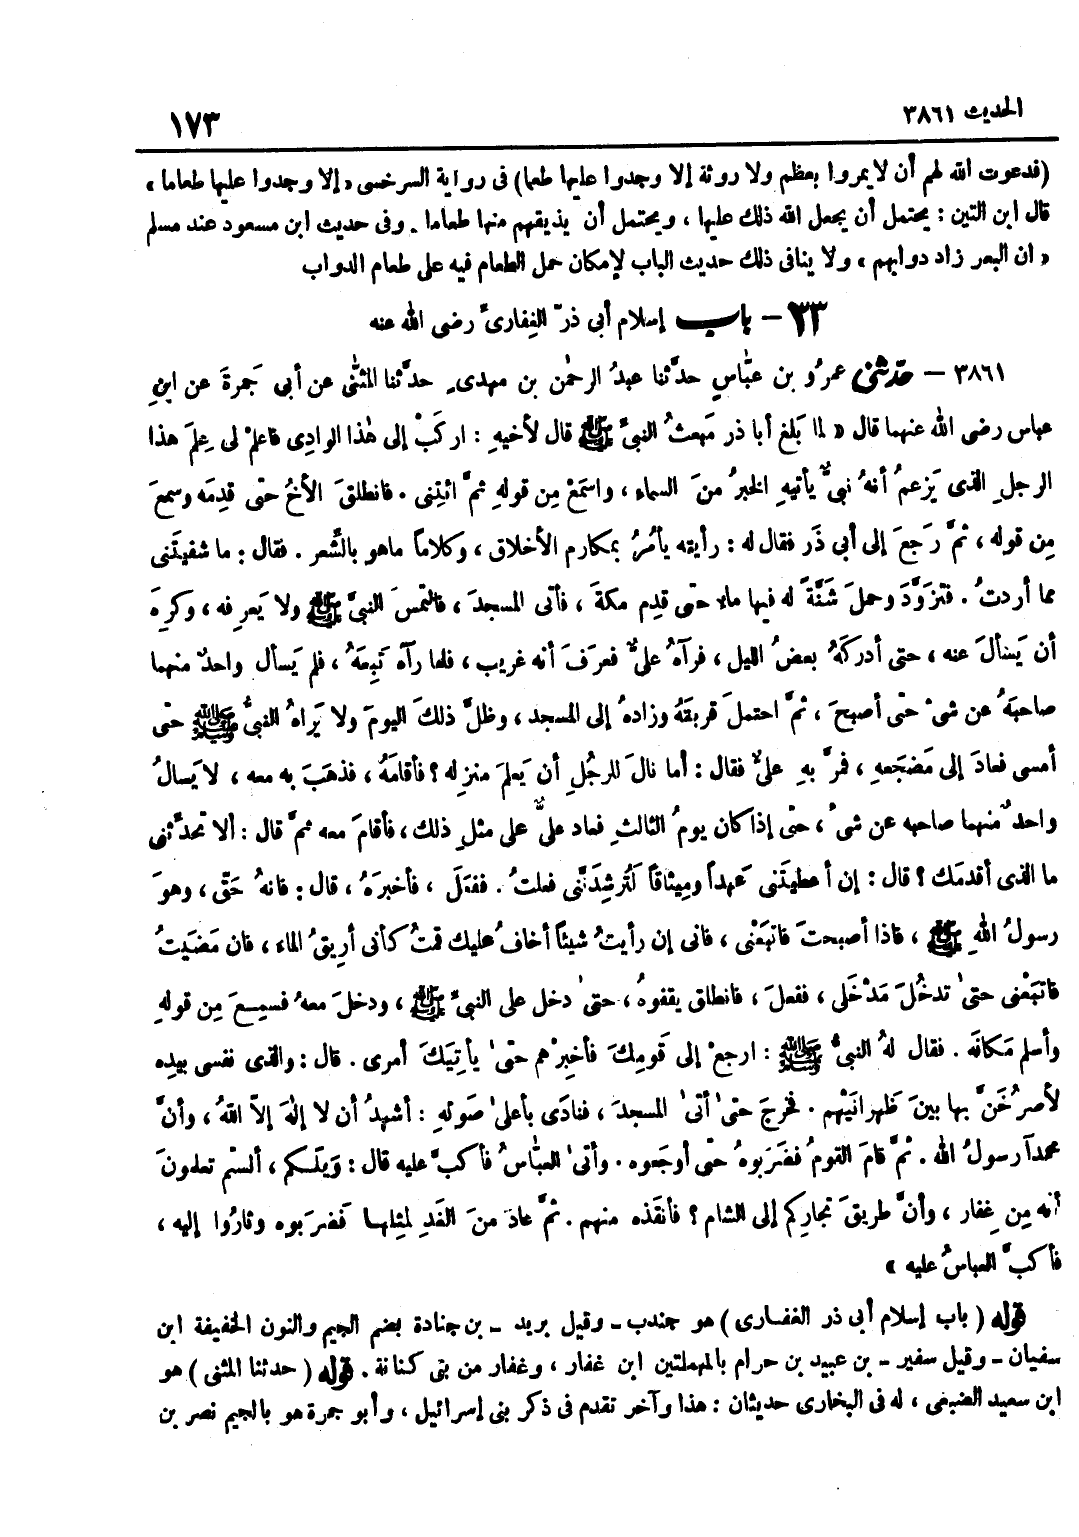 الحديث ٣٨٦١
١٧٣
(فدعوت الله لهم أن لا يمروا بعظم ولا روثة إلا وجدوا عليها طعما) فى رواية السرخسى «إلا وجدوا عليها طعاما»
قال ابن التين : يحتمل أن يجعل الله ذلك عليها ، ويحتمل أن يذيقهم منها طعاما . وفى حديث ابن مسعود عند مسلم
« ان البعر زاد دوابهم » ولا ينافى ذلك حديث الباب لإمكان حمل الطعام فيه على طعام الدواب
٣٣ – باب إسلام أبى ذرّ الغِفارىِّ رضى الله عنه
٣٨٦١ – حدّثنى عمرُو بن عبّاسٍ حدَّثنا عبدُ الرحمٰن بن مهدىٍ حدَّثنا المثنَّى عن أبى جَمرةَ عن ابنِ
عباس رضى الله عنهما قال « لما بَلغ أبا ذر مَبعثُ النبىِّ ﷺ قال لأخيهِ : اركَبْ إلى هٰذا الوادِى فاعلمْ لى عِلمَ هذا
الرجلِ الذى يَزعمُ أنهُ نبىٌّ يأتيهِ الخبرُ منَ السماء ، واسمَعْ مِن قولهِ ثمَّ ائتِنى . فانطلقَ الأخُ حتّى قدِمَه وسمعَ
مِن قوله ، ثمَّ رَجعَ إلى أبى ذَر فقال له : رأيته يأمُرُ بمكارم الأخلاق ، وكلاماً ماهو بالشِّعر . فقال : ما شفيتَنى
مما أردتُ . فتزوَّدَ وحملَ شَنَّةً له فيها ماء حتى قدِم مكةَ ، فأتى المسجدَ ، فالتمسَ النبىَّ ﷺ ولا يَعرِفه ، وكرِهَ
أن يَسألَ عنه ، حتى أدركَهُ بعضُ الليل ، فرآهُ علىٌّ فعرَفَ أنه غريب ، فلما رآه تَبِعَهُ ، فلم يَسأل واحدٌ منهما
صاحبَهُ عن شىْ حتّى أصبحَ ، ثمَّ احتملَ قربَتَهُ وزادهُ إلى المسجد ، وظلَّ ذلكَ اليومَ ولا يَراهُ النبىُّ ﷺ حتّى
أمسى فعادَ إلى مَضجَعهِ ، فمرَّ بهِ علىٌّ فقال : أما نالَ للرجُلِ أن يَعلمَ منزِله ؟ فأقامَهُ ، فذهَبَ به معه ، لا يَسالُ
واحدٌ منهما صاحبه عن شىْ ، حتّى إذا كان يومُ الثالثِ فعاد علىٌّ على مثلِ ذلك ، فأقامَ معه ثمَّ قال : ألا تحدَّثنى
ما الذى أقدمَك ؟ قال : إن أعطيتَنى عَهداً ومِيثاقاً لَتُرشِدَنَّنى فعلتُ . ففعَلَ ، فأخبرَهُ ، قال : فانهُ حَقّ ، وهوَ
رسولُ اللهِ ﷺ ، فاذا أصبحتَ فاتبَعْنى ، فانى إن رأيتُ شيئاً أخافُ عليك قمتُ كأنى أرِيقُ الماء ، فان مَضَيتُ
فاتبَعْنى حتىٰ تدخُلَ مَدْخَلى ، ففعلَ ، فانطلق يقفوهُ ، حتىٰ دخل على النبىِّ ﷺ ، ودخلَ معهُ فسمِعَ مِن قولهِ
وأسلم مَكانَه . فقال لهُ النبىُّ ﷺ : ارجعْ إلى قَومِكَ فأخبِرْهم حتّىٰ يأتِيَكَ أمرى . قال : والذى نفسى بيدِه
لأصرُخَنَّ بها بينَ ظَهرانَيْهم . فخرجَ حتىٰ أتىٰ المسجدَ ، فنادَى بأعلىٰ صَوتهِ : أشهدُ أن لا إلٰهَ إلاّ اللهُ ، وأنَّ
محمداً رسولُ الله . ثمَّ قامَ القومُ فضَرَبوهُ حتّى أوجَعوه . وأتىٰ العبّاسُ فأكبَّ عليه قال : وَيلَكم ، ألستم تعلمونَ
أنه مِن غِفار ، وأنَّ طريقَ تجارِكم إلى الشام ؟ فأنقَذه منهم . ثمَّ عادَ منَ الغَدِ لمِثلها فَضرَبوه وثارُوا إليه ،
فأكبَّ العباسُ عليه »
قوله ( باب إسلام أبى ذر الغفارى ) هو جندب ــ وقيل بريد ــ بن جنادة بضم الجيم والنون الخفيفة ابن
سفيان ــ وقيل سفير ــ بن عبيد بن حرام بالمهملتين ابن غفار ، وغفار من بنى كنانة . قوله ( حدثنا المثنى ) هو
ابن سعيد الضبعى ، له فى البخارى حديثان : هذا وآخر تقدم فى ذكر بنى إسرائيل ، وأبو جمرة هو بالجيم نصر بن